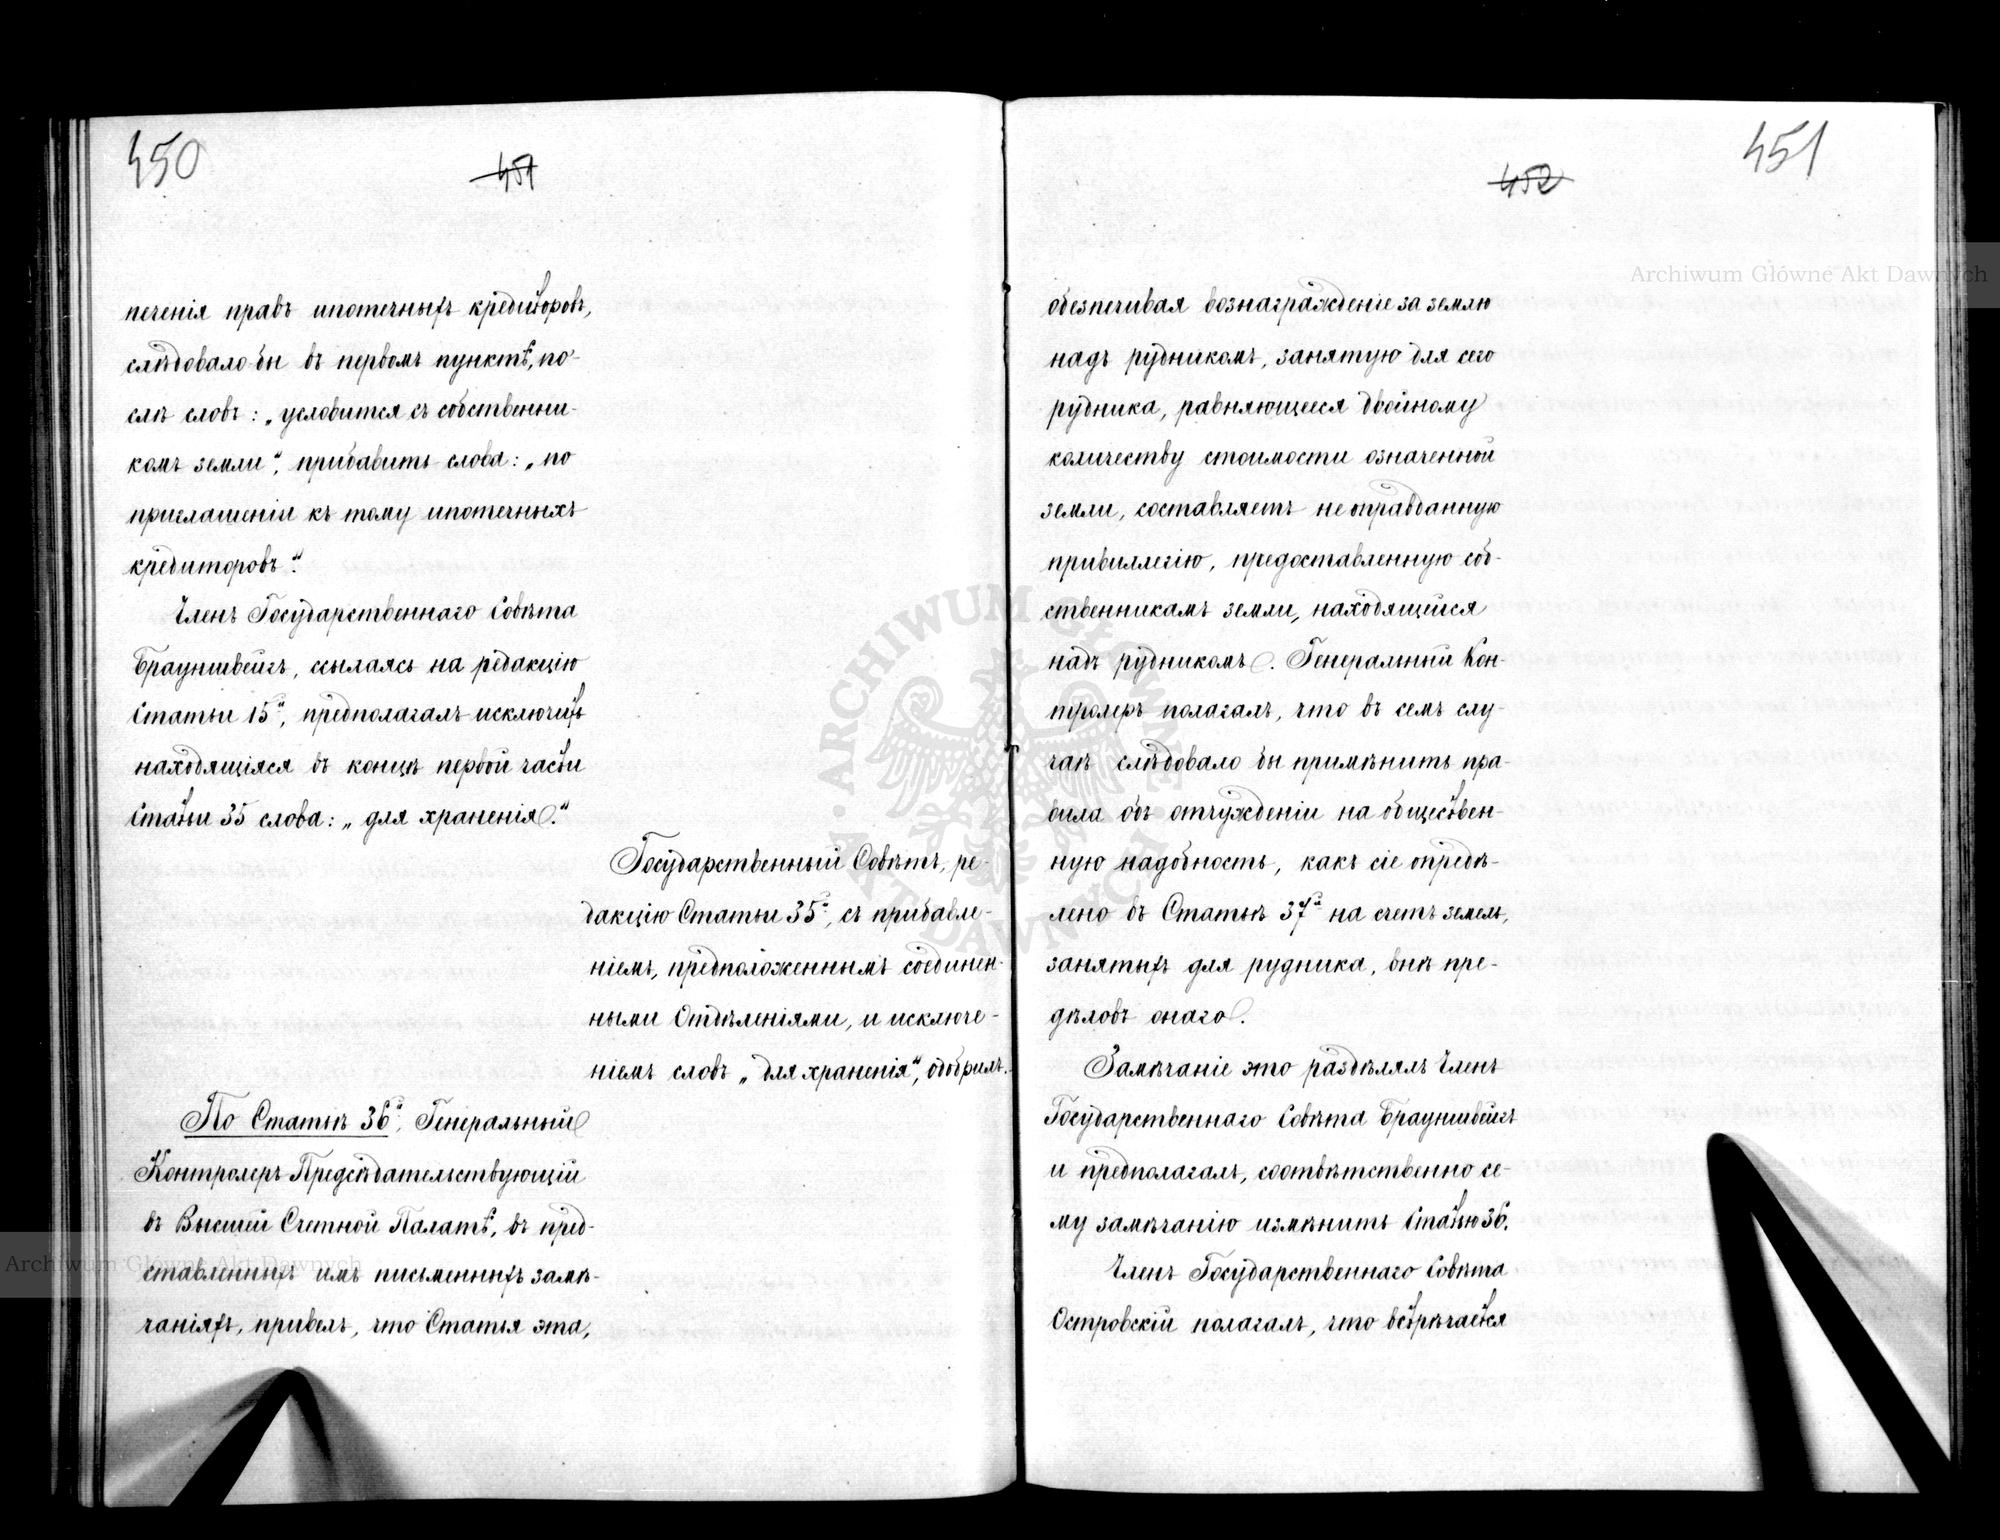 450
451
печенія правъ ипотечныхъ кредиторовъ,
слѣдовало бы въ первомъ пунктѣ, по-
слѣ словъ: „условится съ собственни-
комъ земли“, прибавить слова: „по
приглашеніи къ тому ипотечныхъ
кредиторовъ“.
Членъ Государственнаго Совѣта
Брауншвейгъ, ссылаясь на редакцію
Статьи 15й, предполагалъ исключить
находящіяся въ концѣ первой части
Статьи 35 слова: „для храненія.“
Государственный Совѣтъ, ре-
дакцію Статьи 35й, съ прибавле-
ніемъ, предположеннымъ соединен-
ными Отдѣленіями, и исключе-
ніемъ словъ „для храненія“, одобрилъ.
По Статьѣ 36й, Генеральный
Контролеръ Предсѣдательствующій
въ Высшей Счетной Палатѣ, въ пред-
ставленныхъ имъ письменныхъ замѣ-
чаніяхъ, привелъ, что Статья эта,
451
452
обезпечивая вознагражденіе за землю
надъ рудникомъ, занятую для сего
рудника, равняющееся двойному
количеству стоимости означенной
земли, составляетъ не оправданную
привиллегію, предоставленную соб-
ственникамъ земли, находящейся
надъ рудникомъ. Генеральный Кон-
тролеръ полагалъ, что въ семъ слу-
чаѣ слѣдовало бы примѣнить пра-
вила объ отчужденіи на обществен-
ную надобность, какъ сіе опредѣ-
лено въ Статьѣ 37й на счетъ земель,
занятыхъ для рудника, внѣ пре-
дѣловъ онаго.
Замѣчаніе это раздѣлялъ Членъ
Государственнаго Совѣта Брауншвейгъ
и предполагалъ, соотвѣтственно се-
му замѣчанію измѣнить Статью 36.
Членъ Государственнаго Совѣта
Островскій полагалъ, что встрѣчается
Archiwum Główne Akt Dawnych
Archiwum Główne Akt Dawnych
ARCHIWUM GŁÓWNE AKT DAWNYCH